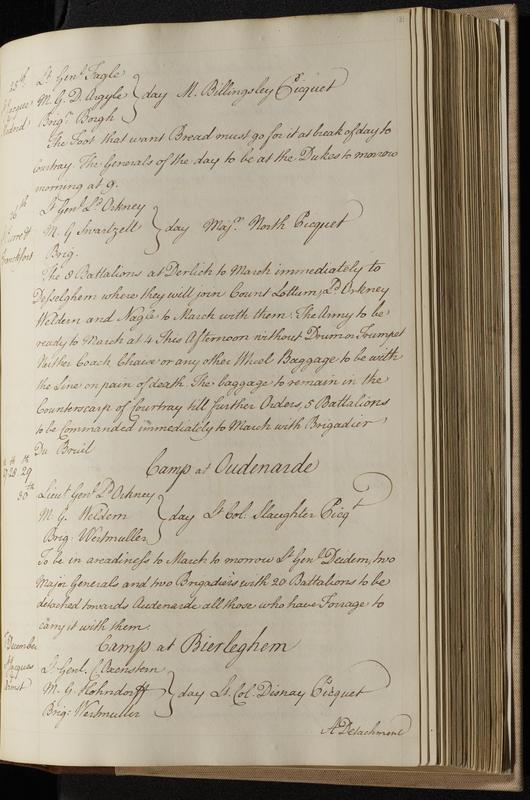 25th Lt. Genl. Fagle
M. G. D. Argyle } day M. Billingsley Picquet
Brigr. Borgh
The Foot that want Bread must go for it at break of day to
Courtray. The Generals of the day to be at the Dukes to morrow
morning at 9.
26th Lt. Genl. Ld. Orkney
M. G. Swartzell } day Majr. North Picquet
Brig.
The 8 Battalions at Derlich to March immediately to
Desselghem where they will join Count Lottum, Ld. Orkney
Weldern and Nagle to March with them. The Army to be
ready to March at 4 This Afternoon without Drum or Trumpet
Neither Coach Chaise or any other Wheel Baggage to be with
the Line on pain of death. The baggage to remain in the
Counterscarp of Courtray till further Orders, 5 Battalions
to be Commanded immediately to March with Brigadier
Du Breuil
28 29
Camp at Oudenarde
30th Lieut. Genl. Ld. Orkney
M. G. Weldern } day Lt. Col. Slaughter Picqt
Brig. Wertmuller
To be in areadiness to March to morrow Lt. Genl. Dedem, two
Major Generals and two Brigadiers with 20 Battalions to be
detached towards Audenarde all those who have Forrage to
carry it with them.
Camp at Bierleghem
December Lt. Genl. C. Oxenstern
M. G. Hohndorff } day Lt. Col. Disnay Picquet
Brig. Wertmuller
A Detachment